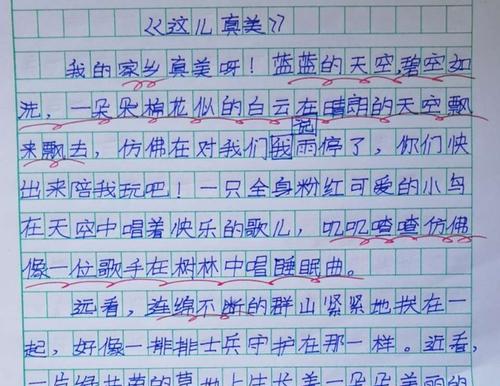 《这儿真美》
我的家乡真美呀！蓝蓝的天空，碧空如
洗，一朵朵棉花似的白云在晴朗的天空飘
来飘去，仿佛在对我们说我雨停了，你们快
出来陪我玩吧！一只全身粉红可爱的小鸟
在天空中唱着快乐的歌儿，叽叽喳喳仿佛
像一位歌手在树林中唱睡眠曲。
远看，连绵不断的群山紧紧地挨在一
起，好像一排排士兵守护在那一样。近看，